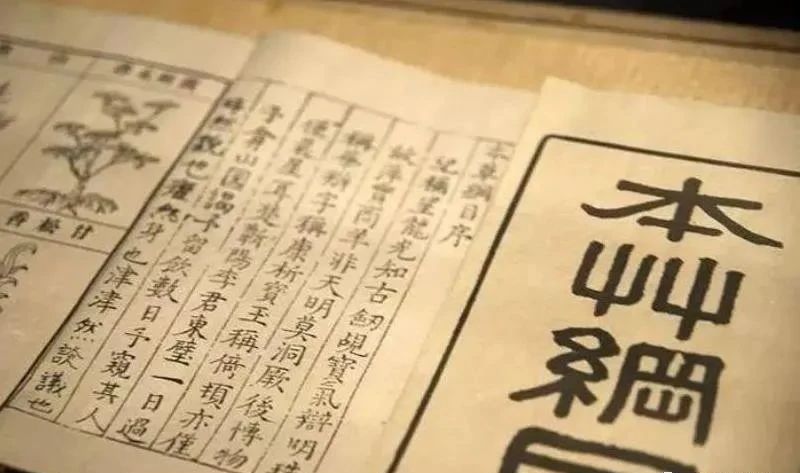 本艸綱
本草綱目序
紀稱望龍光知古劒覘寶氣辯明珠
故萍實商羊非天明莫洞厥後博物
稱華辨字稱康析寶玉稱倚頓亦僅
僅晨星耳楚蘄陽李君東壁一日過
予弇山園謁予留飲數日予窺其人
睟然貌也癯然身也津津然談議也
甘松香